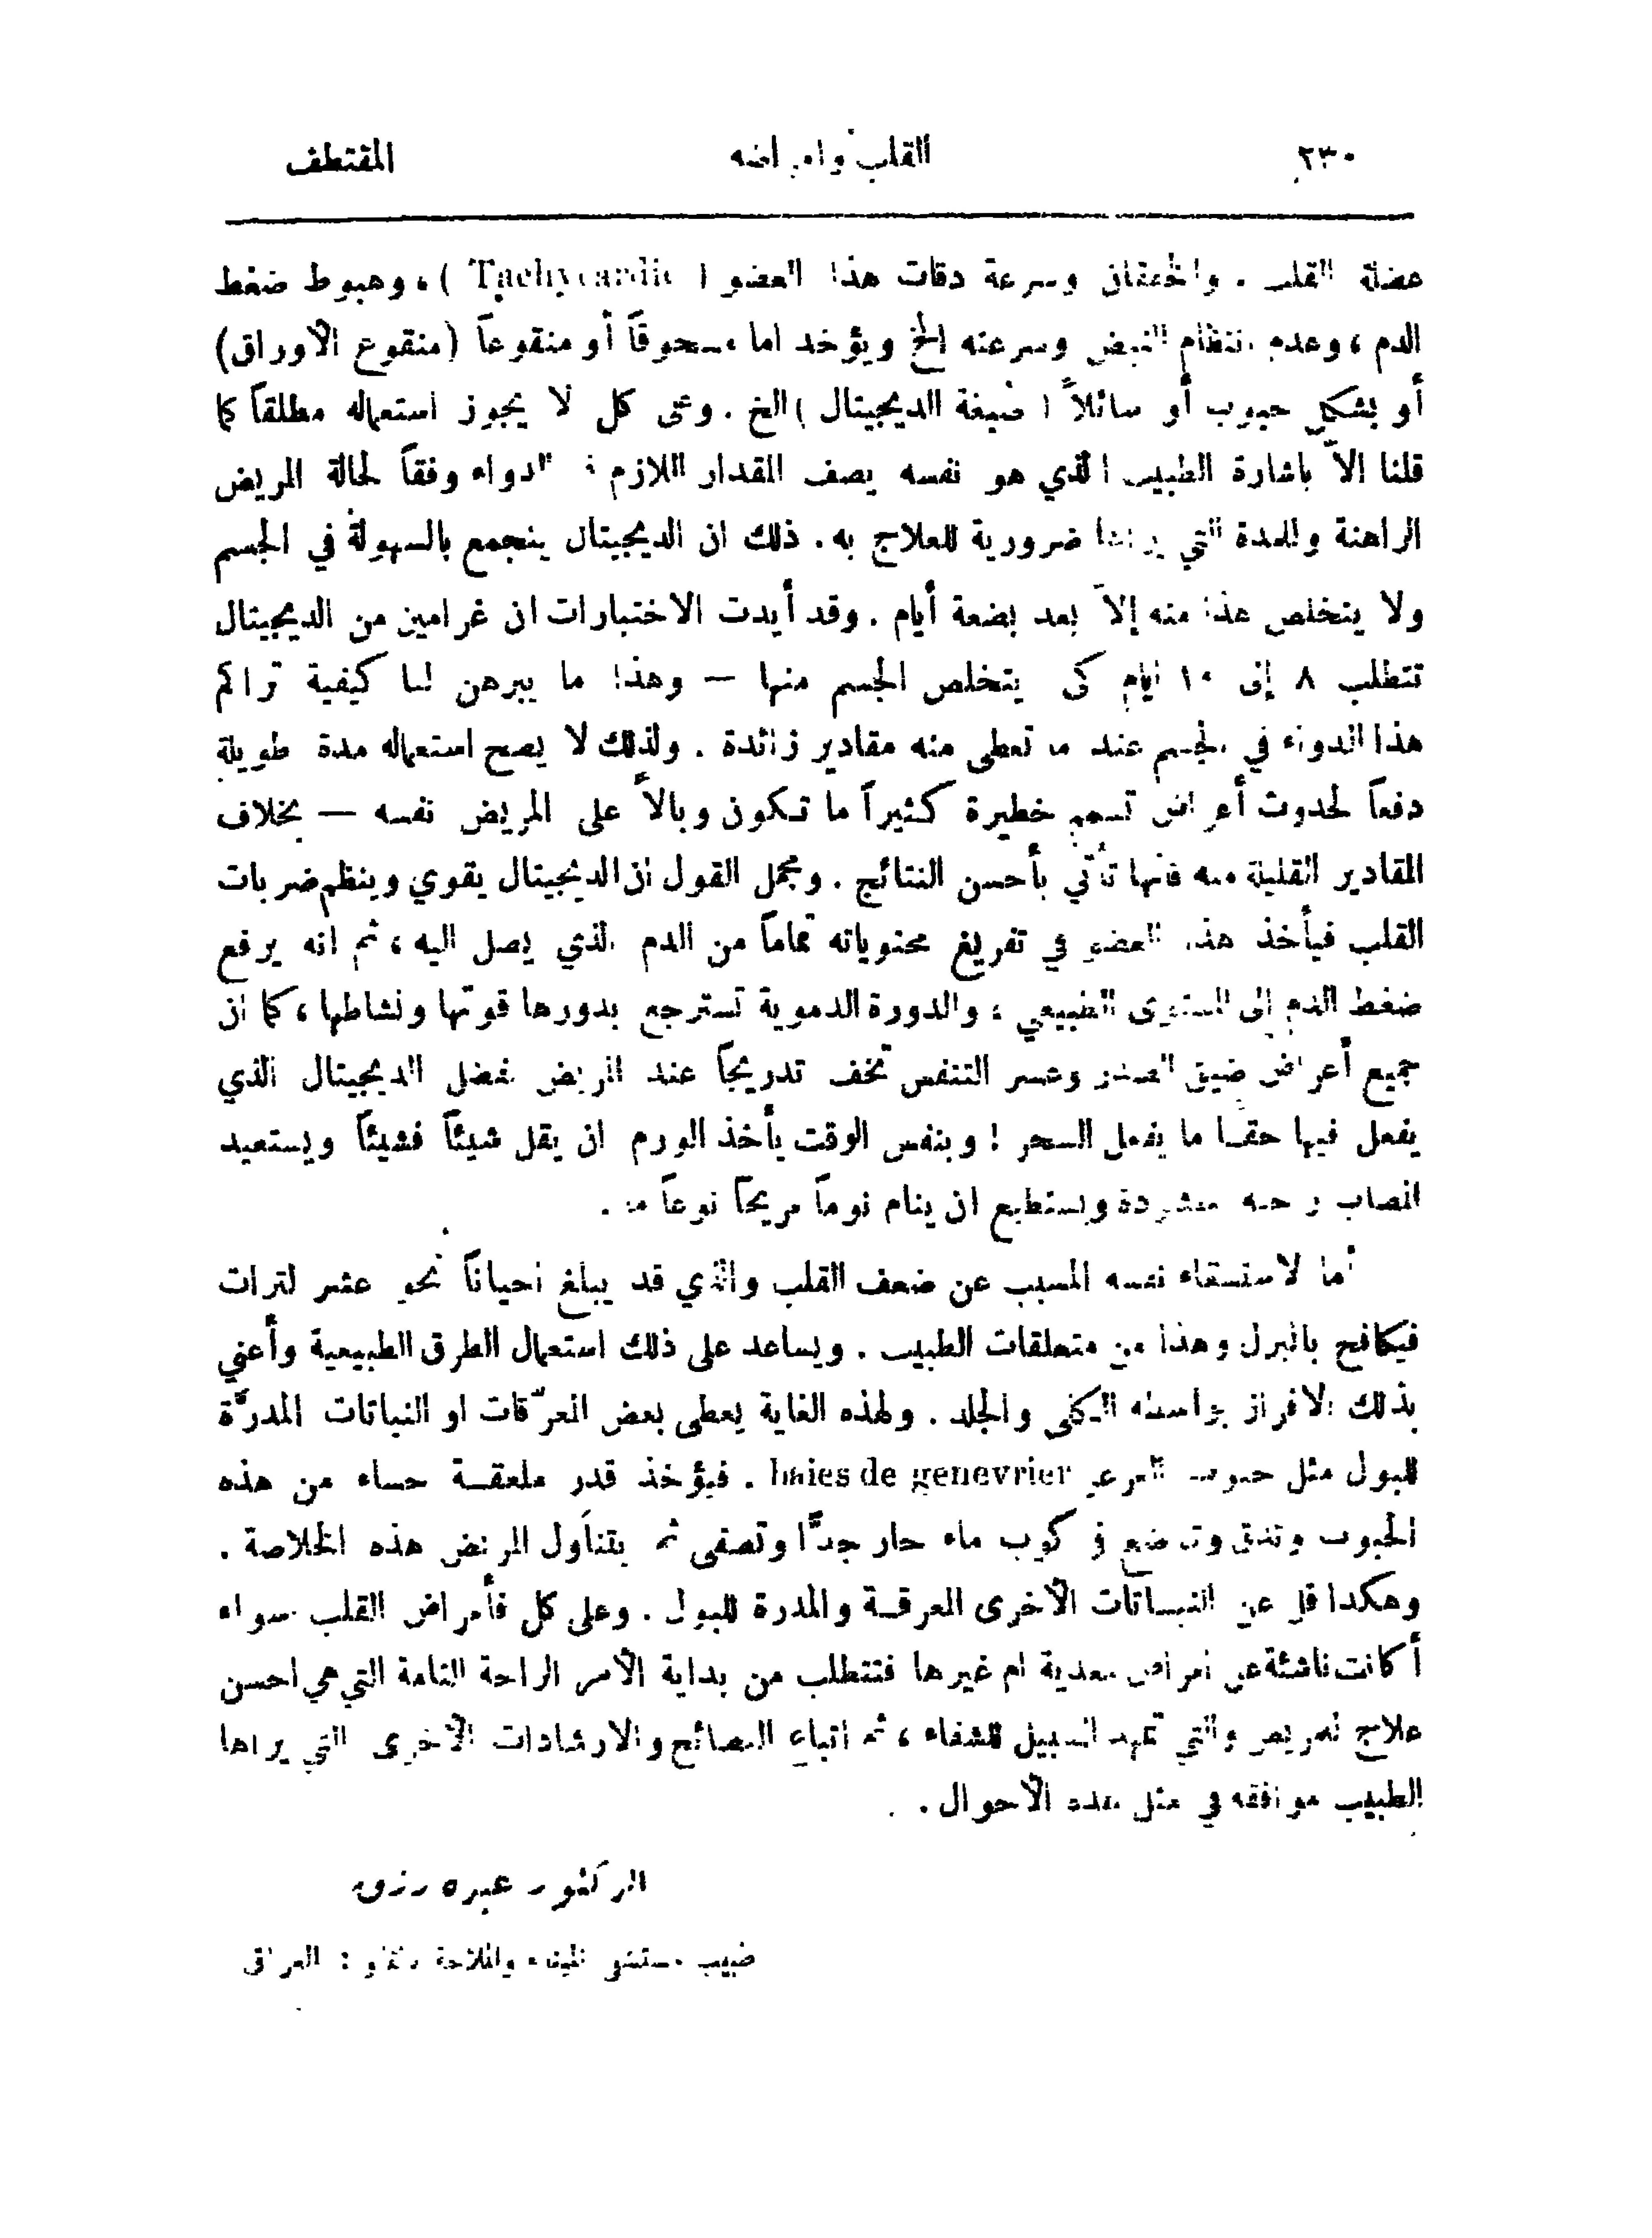 ٢٣٠ القلب وامراضه المقتطف
عضلة القلب . والخفقان وسرعة دقات هذا العضو ( Tachycardie ) ، وهبوط ضغط
الدم ، وعدم انتظام النبض وسرعته الخ ويؤخد اما مسحوقاً أو منقوعاً (منقوع الأوراق)
أو بشكل حبوب أو سائلاً ( صبغة الديجيتال ) الخ . وعلى كل لا يجوز استعماله مطلقاً كما
قلنا الاّ باشارة الطبيب الذي هو نفسه يصف المقدار اللازم الدواء وفقاً لحالة المريض
الراهنة والمدة التي يراها ضرورية للعلاج به . ذلك ان الديجيتال يتجمع بالسهولة في الجسم
ولا يتخلص هذا منه إلاّ بعد بضعة أيام . وقد أيدت الاختبارات ان غرامين من الديجيتال
تتطلب ٨ إلى ١٠ أيام كي يتخلص الجسم منها — وهذا ما يبرهن لنا كيفية تراكم
هذا الدواء في الجسم عند ما تعطى منه مقادير زائدة . ولذلك لا يصح استعماله مدة طويلة
دفعاً لحدوث أعراض تسمم خطيرة كثيراً ما تكون وبالاً على المريض نفسه — بخلاف
المقادير القليلة منه فانها تأتي بأحسن النتائج . ومجمل القول ان الديجيتال يقوي وينظم ضربات
القلب فيأخذ هذا العضو في تفريغ محتوياته تماماً من الدم الذي يصل اليه ، ثم انه يرفع
ضغط الدم إلى المستوى الطبيعي ، والدورة الدموية تسترجع بدورها قوتها ونشاطها ، كما ان
جميع أعراض ضيق الصدر وعسر التنفس تخف تدريجاً عند المريض بفضل الديجيتال الذي
يفعل فيها حقا ما يفعل السحر ! وبنفس الوقت يأخذ الورم ان يقل شيئاً فشيئاً ويستعيد
المصاب راحته المنشودة ويستطيع ان ينام نوماً مريحاً نوعاً ما .
أما الاستسقاء نفسه المسبب عن ضعف القلب والذي قد يبلغ أحياناً نحو عشر لترات
فيكافح بالبزل وهذا من متعلقات الطبيب . ويساعد على ذلك استعمال الطرق الطبيعية وأعني
بذلك الافراز بواسطة الكلى والجلد . ولهذه الغاية يعطى بعض المعرّقات او النباتات المدرّة
للبول مثل حبوب العرعر baies de genevrier . فيؤخذ قدر ملعقة حساء من هذه
الحبوب وتدق وتوضع في كوب ماء حار جدًّا وتصفى ثم يتناول المريض هذه الخلاصة .
وهكدا قل عن النباتات الأخرى المعرقة والمدرة للبول . وعلى كل فأمراض القلب سواء
أكانت ناشئة عن أمراض معدية ام غيرها فتتطلب من بداية الأمر الراحة التامة التي هي احسن
علاج للمريض والتي تمهد السبيل للشفاء ، ثم اتباع النصائح والارشادات الأخرى التي يراها
الطبيب موافقة في مثل هذه الأحوال .
الدكتور عبده رزق
طبيب مستشفى الميناء والملاحة : العراق